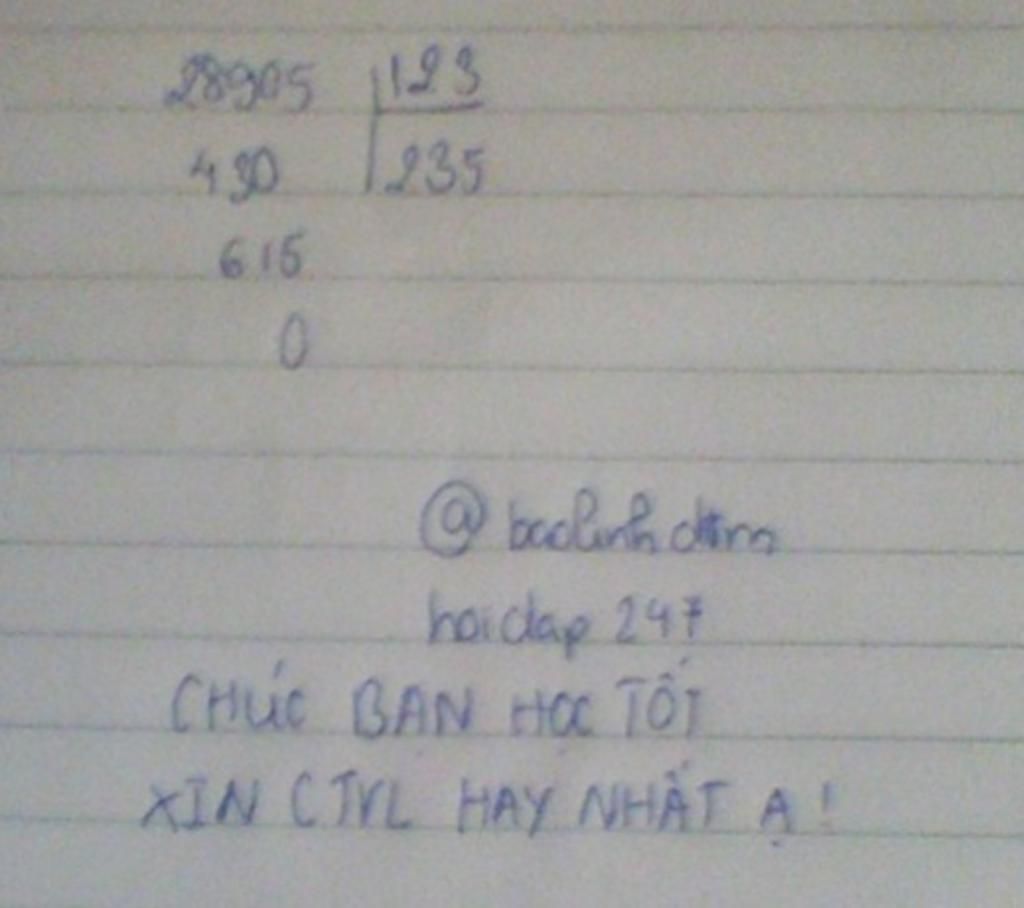 28905 123
430 235
615
0
@ baolinh
hoidap 247
CHÚC BẠN HỌC TỐT
XIN CTLHAY NHẤT Ạ!